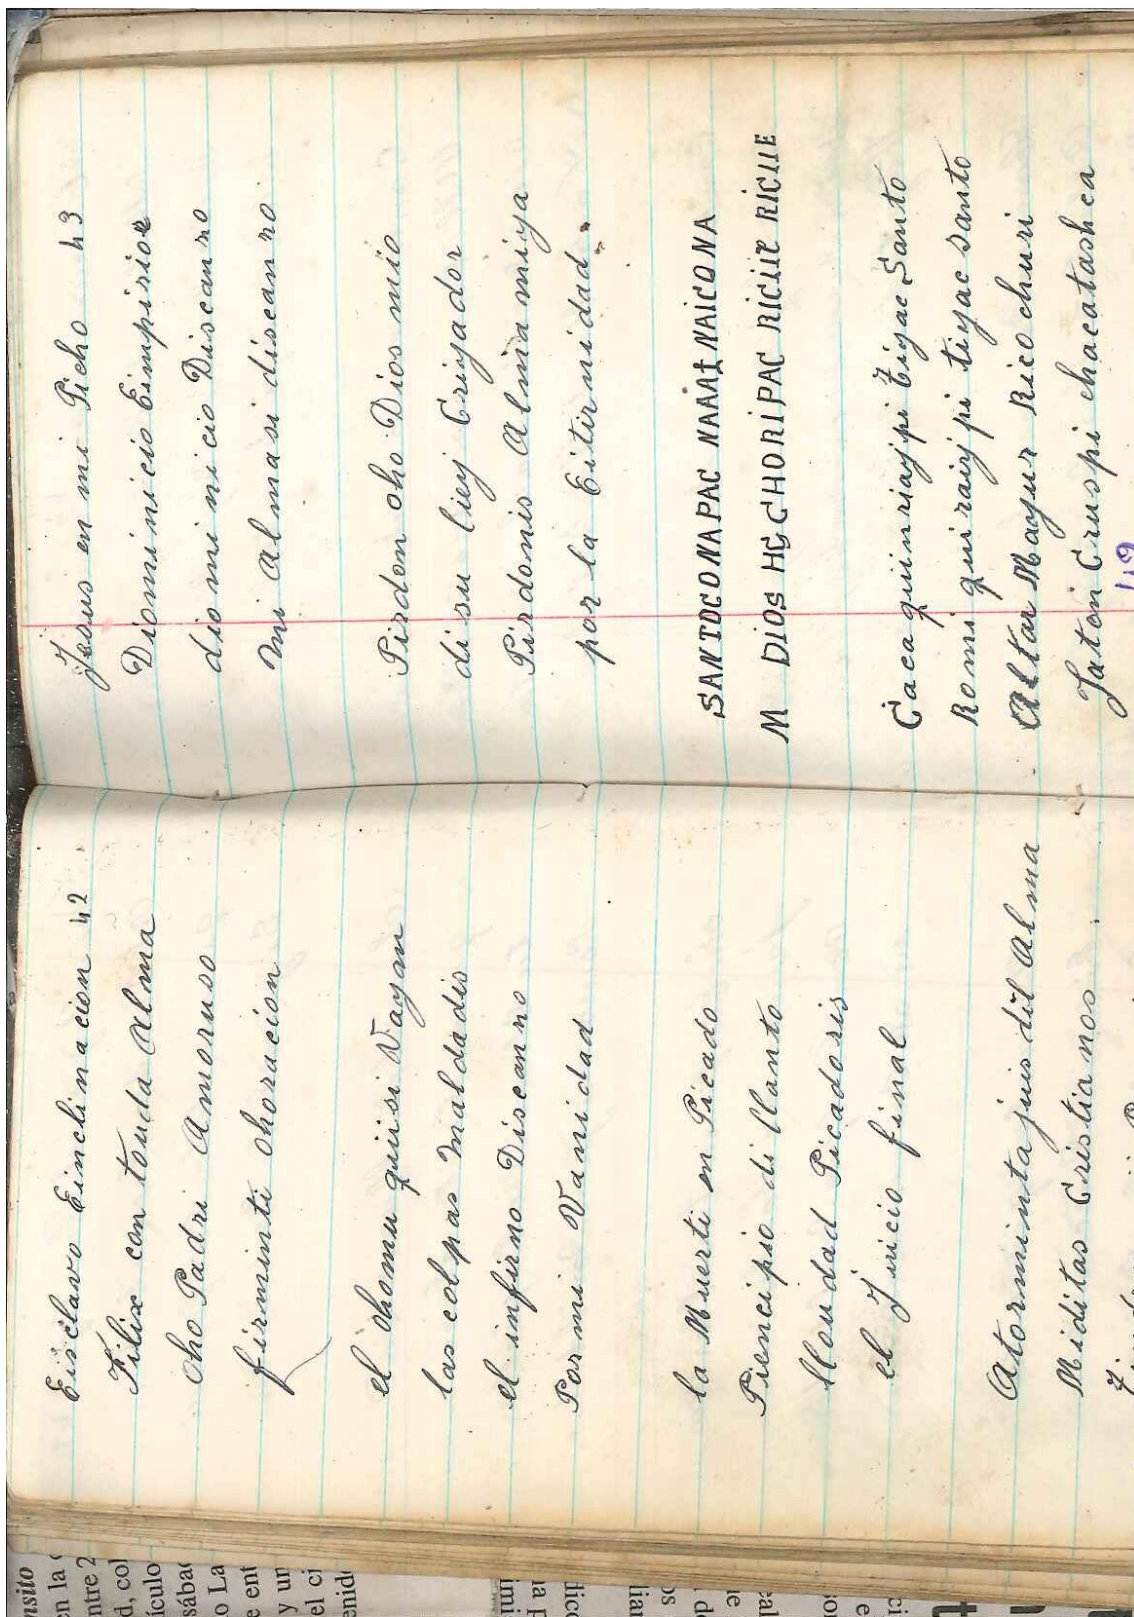 Eisclavo Einclinacion 42
Filix con touda alma
Oho Padri Amoruso
firminti ohoracion
el Ohomu quisi Vayan
las colpas Maldadis
el infirno Discanno
Por mi Vanidad
la Muerti en Picado
Piencipio di llanto
lloudad Picadoris
el Juicio final
Atormintajuis dil Alma
Miditas Cristianos
Jesus en mi Picho 43
Diominicio Eimpirior
diominicio Discanno
Mi almasi discanno
Pirdon oho Dios mio
di su liey Criyador
Pirdonis Alma miya
por la Eitirnidad.
SANTOCONAPAC NAAAINAICONA
M DIOS HCCHORIPAC RICUE RICUE
Caca quinriaypi tiyac Santo
Romi quiraiypi tiyac santo
Altar Mayur Rico churi
Jaton Cruspi chacatashca
49
nsito
en la
entre 2
d, col
ículo
sábad
o La
e ent
y un
el ci
enid